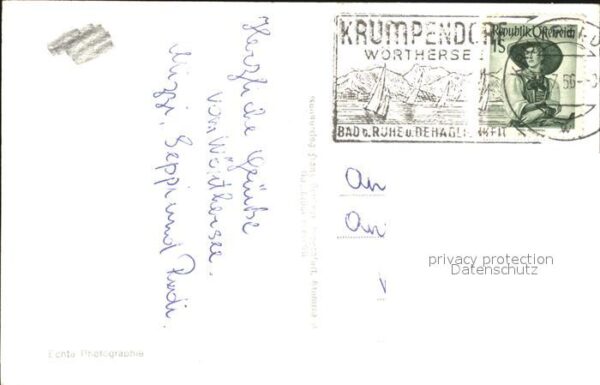 KRUMPENDORF
WÖRTHERSEE
BAD D. RUHE U. BEHAGLICHKEIT
Republik Österreich
1S
56
Herzliche Grüße
vom Wörthersee.
Mizzi, Seppi und Rudi.
An
An
privacy protection
Datenschutz
Echte Photographie